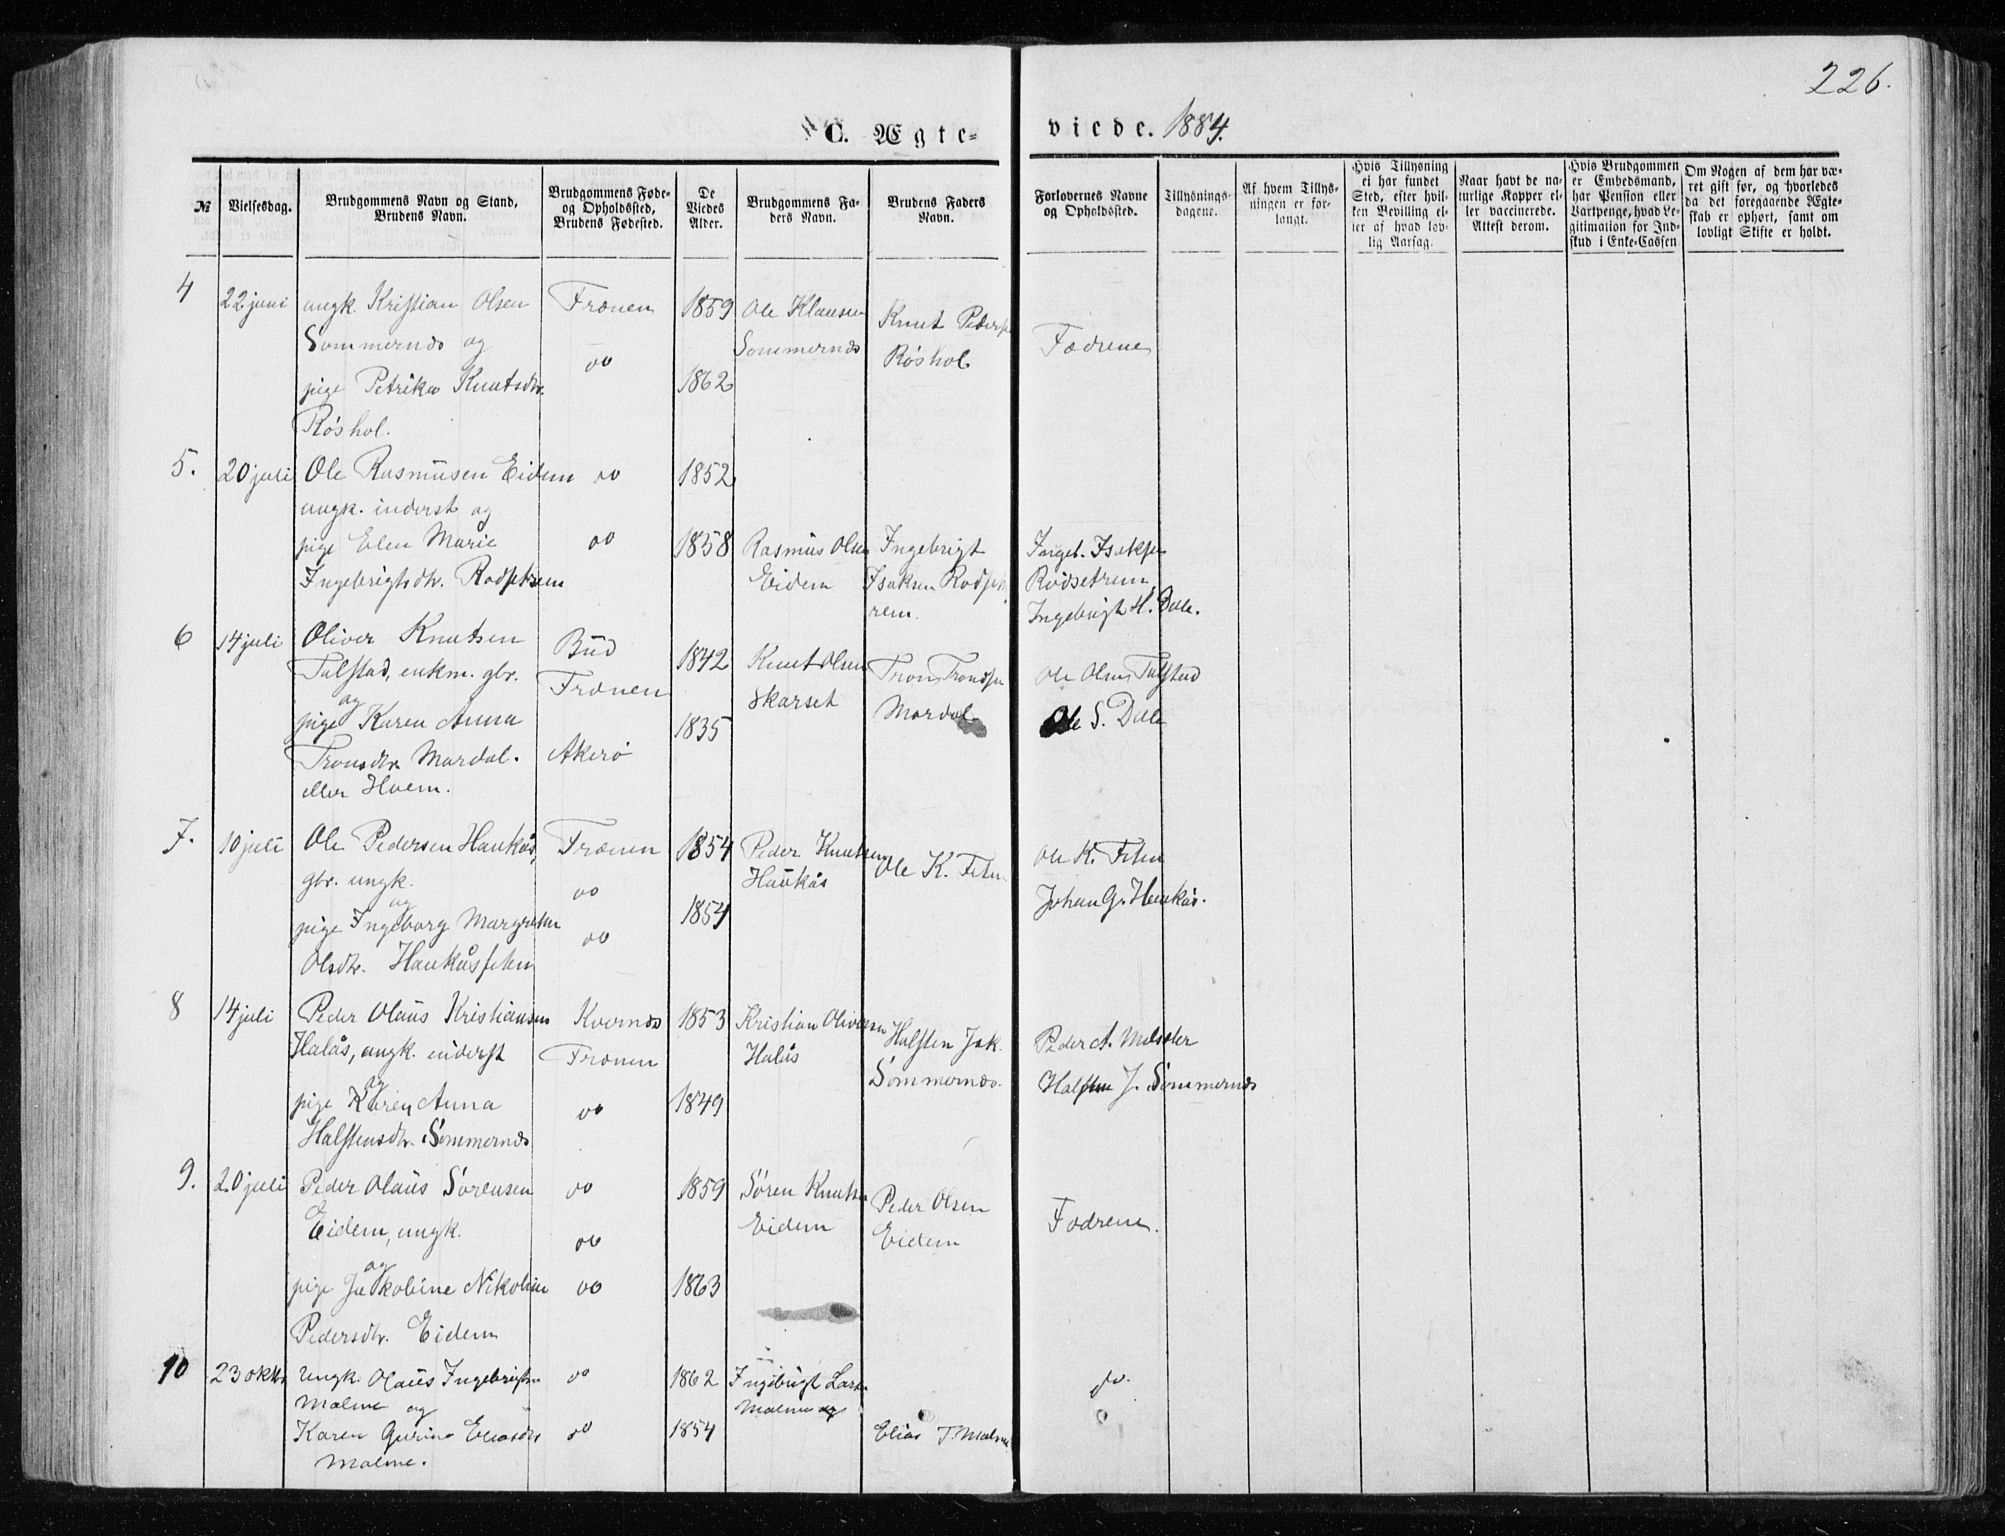 226.
C. Ægte-
viede. 1884.
№
Vielsesdag.
Brudgommens Navn og Stand,
Brudens Navn.
Brudgommens Føde-
og Opholdssted,
Brudens Fødested.
De
Viedes
Alder.
Brudgommens Fa-
ders Navn.
Brudens Faders
Navn.
Forlovernes Navne
og Opholdssted.
Tillysnings-
dagene.
Af hvem Tillys-
ningen er for-
langt.
Hvis Tillysning
ei har fundet
Sted, efter hvil-
ken Bevilling el-
ler af hvad lov-
lig Aarsag.
Naar havt de na-
turlige Kopper el-
ler vaccinerede.
Attest derom.
Hvis Brudgommen
er Embedsmand,
har Pension eller
Vartpenge, hvad Le-
gitimation for Ind-
skud i Enke-Cassen
Om Nogen af dem har væ-
ret gift før, og hvorledes
da det foregaaende Ægte-
skab er ophørt, samt om
lovligt Skifte er holdt.
4
22 juni
ungk. Kristian Olsen
Sommernæs og
pige Petrika Knutsdtr.
Røshol.
Frænen
do
1859
1862
Ole Klausen
Sommernæs
Knut Peders
Røshol
Fædrene
5.
20 juli
Ole Rasmusen Eidem
ungk. inderst og
pige Elen Marie
Ingebrigtsdtr. Rødsetrem
do
do
1852
1858
Rasmus Olsen
Eidem
Ingebrigt
Isaksen Rødset
rem.
Ingeb. Isaksen
Rødsetrem,
Ingebrigt H. Dale.
6
14 juli
Oliver Knutsen
Talstad, enkm. gbr.
og
pige Karen Anna
Tronsdtr. Mardal.
eller Hoem.
Bud
Frænen
Akerø
1842
1835
Knut Olsen
Skarset
Tron Trondsen
Mardal
Ole Olsen Talstad
Ole S. Dale
7.
10 juli
Ole Pedersen Haukås,
gbr. ungk.
og
pige Ingeborg Margrethe
Olsdtr. Haukåsfeten
Frænen
do
do
1854
1854
Peder Knutsen
Haukås
Ole K. Feten
Ole K. Feten
Johan G. Haukås.
8
14 juli
Peder Olaus Kristiansen
Halås, ungk. inderst
og
pige Karen Anna
Halstensdtr. Sommernæs
Kvernæs
Frænen
do
1853
1849
Kristian Olivsen
Halås
Halsten Jak.
Sommernæs.
Peder A. Melsæter
Halsten J. Sommernæs
9.
20 juli
Peder Olaus Sørensen
Eidem, ungk.
og
pige Jakobine Nikoline
Pedersdtr. Eidem
do
do
do
1859
1863
Søren Knutsen
Eidem
Peder Olsen
Eidem
Fædrene.
10
23 oktbr
Ungk. Olaus Ingebrigtsen
Malme og
Karen Gurine Eliasdtr
Malme.
do
do
1862
1854
Ingebrigt Larsen
Malme
Elias T. Malme
do.